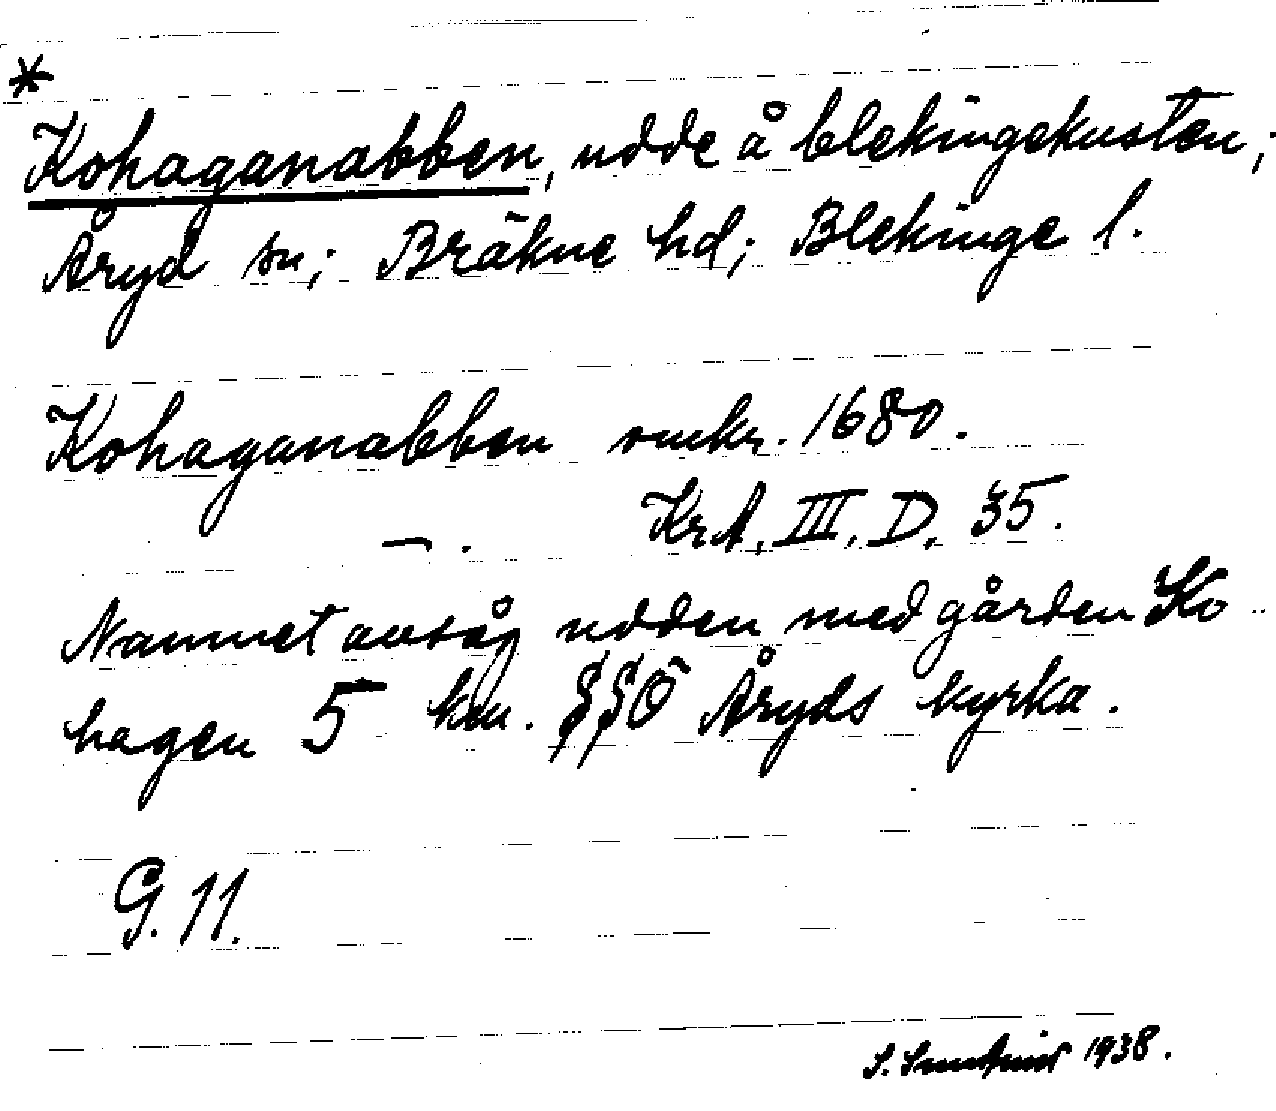 *
Kohaganabben, udde å blekingekusten;
Åryd sn; Bräkne hd; Blekinge l.
Kohaganabben omkr. 1680.
—. KrA, III, D, 35.
Namnet avsåg udden med gården Ko
hagen 5 km. SSÖ Åryds kyrka.
G. 11.
S. 1938.